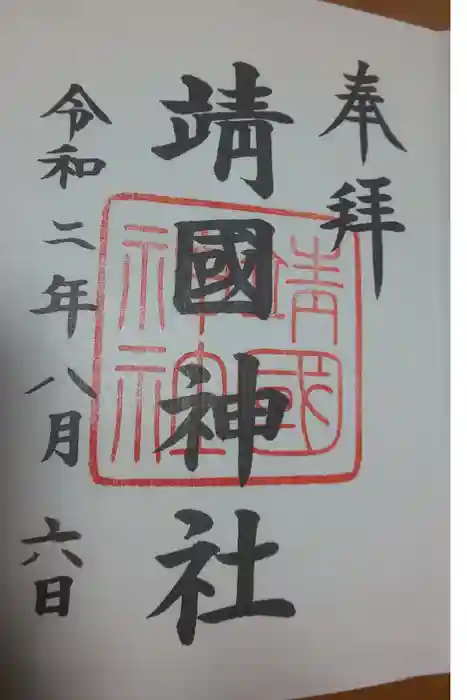 奉拝
靖國神社
靖國
神社
令和二年八月六日